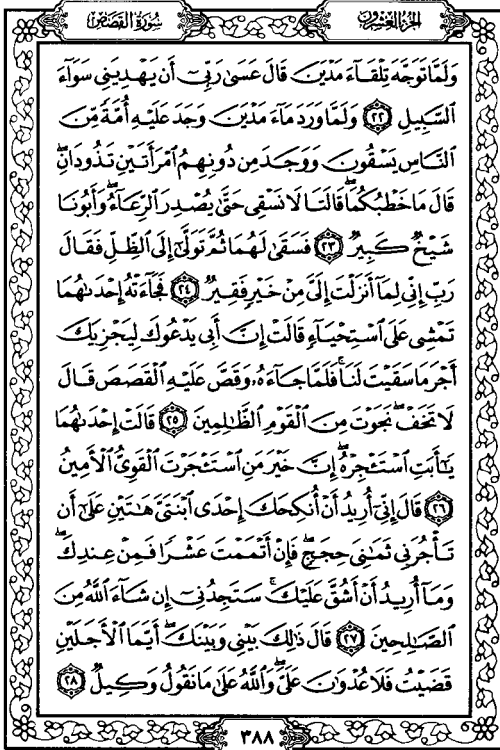 الجزء العشرون
سورة القصص
وَلَمَّا تَوَجَّهَ تِلْقَآءَ مَدْيَنَ قَالَ عَسَىٰ رَبِّىٓ أَن يَهْدِيَنِى سَوَآءَ
ٱلسَّبِيلِ ٢٢ وَلَمَّا وَرَدَ مَآءَ مَدْيَنَ وَجَدَ عَلَيْهِ أُمَّةً مِّنَ
ٱلنَّاسِ يَسْقُونَ وَوَجَدَ مِن دُونِهِمُ ٱمْرَأَتَيْنِ تَذُودَانِۖ
قَالَ مَا خَطْبُكُمَاۖ قَالَتَا لَا نَسْقِى حَتَّىٰ يُصْدِرَ ٱلرِّعَآءُۖ وَأَبُونَا
شَيْخٌ كَبِيرٌ ٢٣ فَسَقَىٰ لَهُمَا ثُمَّ تَوَلَّىٰٓ إِلَى ٱلظِّلِّ فَقَالَ
رَبِّ إِنِّى لِمَآ أَنزَلْتَ إِلَىَّ مِنْ خَيْرٍ فَقِيرٌ ٢٤ فَجَآءَتْهُ إِحْدَىٰهُمَا
تَمْشِى عَلَى ٱسْتِحْيَآءٍ قَالَتْ إِنَّ أَبِى يَدْعُوكَ لِيَجْزِيَكَ
أَجْرَ مَا سَقَيْتَ لَنَاۚ فَلَمَّا جَآءَهُۥ وَقَصَّ عَلَيْهِ ٱلْقَصَصَ قَالَ
لَا تَخَفْۖ نَجَوْتَ مِنَ ٱلْقَوْمِ ٱلظَّـٰلِمِينَ ٢٥ قَالَتْ إِحْدَىٰهُمَا
يَـٰٓأَبَتِ ٱسْتَـْٔجِرْهُۖ إِنَّ خَيْرَ مَنِ ٱسْتَـْٔجَرْتَ ٱلْقَوِىُّ ٱلْأَمِينُ
٢٦ قَالَ إِنِّىٓ أُرِيدُ أَنْ أُنكِحَكَ إِحْدَى ٱبْنَتَىَّ هَـٰتَيْنِ عَلَىٰٓ أَن
تَأْجُرَنِى ثَمَـٰنِىَ حِجَجٍۖ فَإِنْ أَتْمَمْتَ عَشْرًا فَمِنْ عِندِكَۖ
وَمَآ أُرِيدُ أَنْ أَشُقَّ عَلَيْكَۚ سَتَجِدُنِىٓ إِن شَآءَ ٱللَّهُ مِنَ
ٱلصَّـٰلِحِينَ ٢٧ قَالَ ذَٰلِكَ بَيْنِى وَبَيْنَكَۖ أَيَّمَا ٱلْأَجَلَيْنِ
قَضَيْتُ فَلَا عُدْوَٰنَ عَلَىَّۖ وَٱللَّهُ عَلَىٰ مَا نَقُولُ وَكِيلٌ ٢٨
٣٨٨